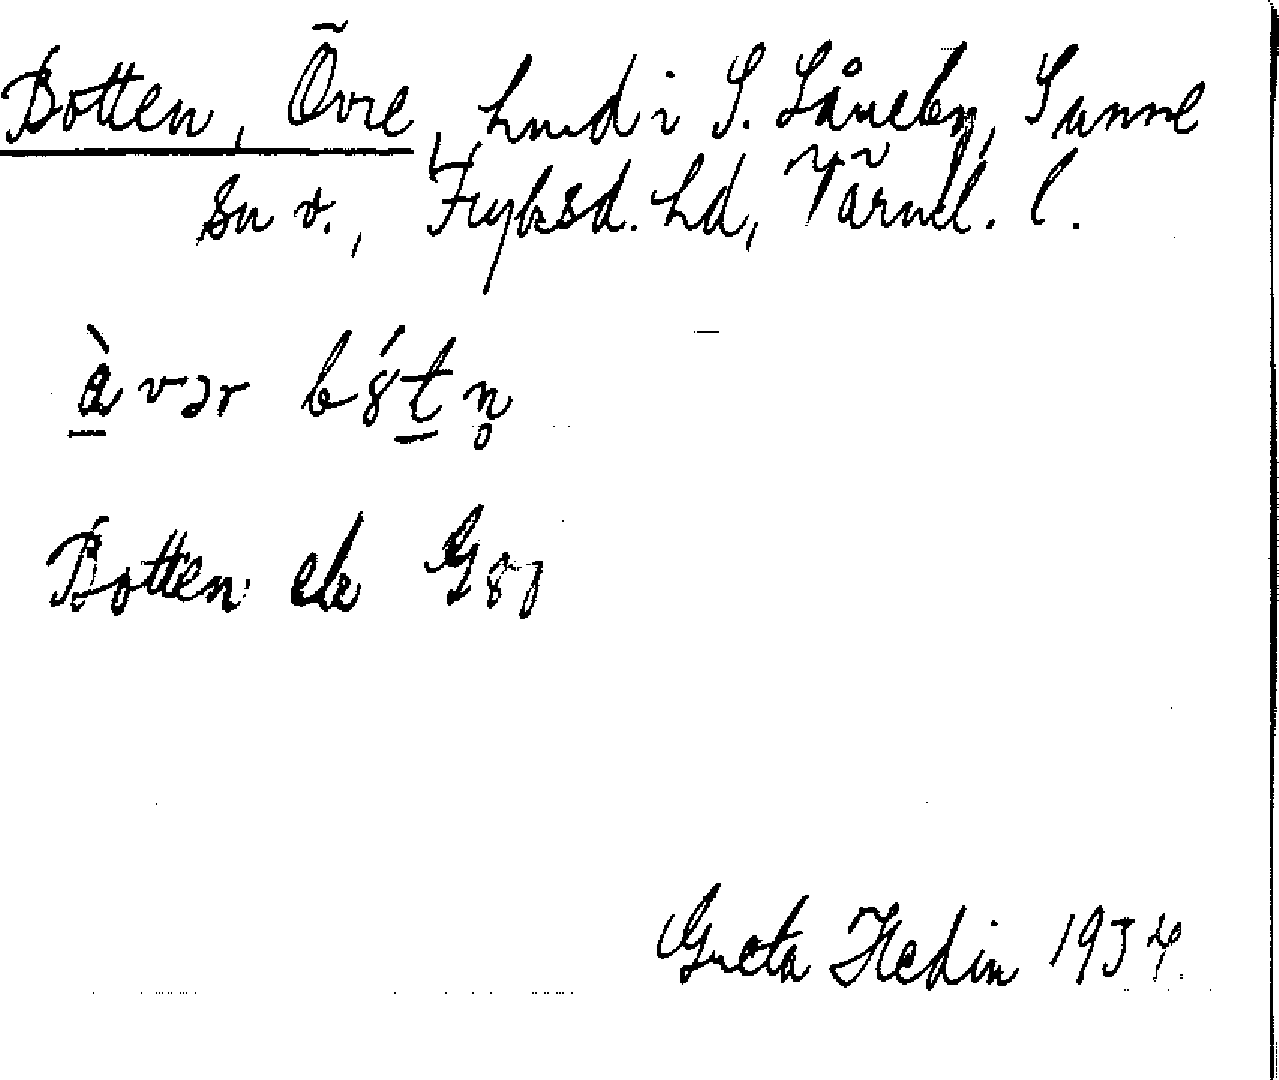 Botten, Övre, hmd i S. Låneby, Sunne
sn o., Fryksd. hd, Värml. l.
àvər bó́tn̥
Botten ek G 81
Greta Hedin 1934.